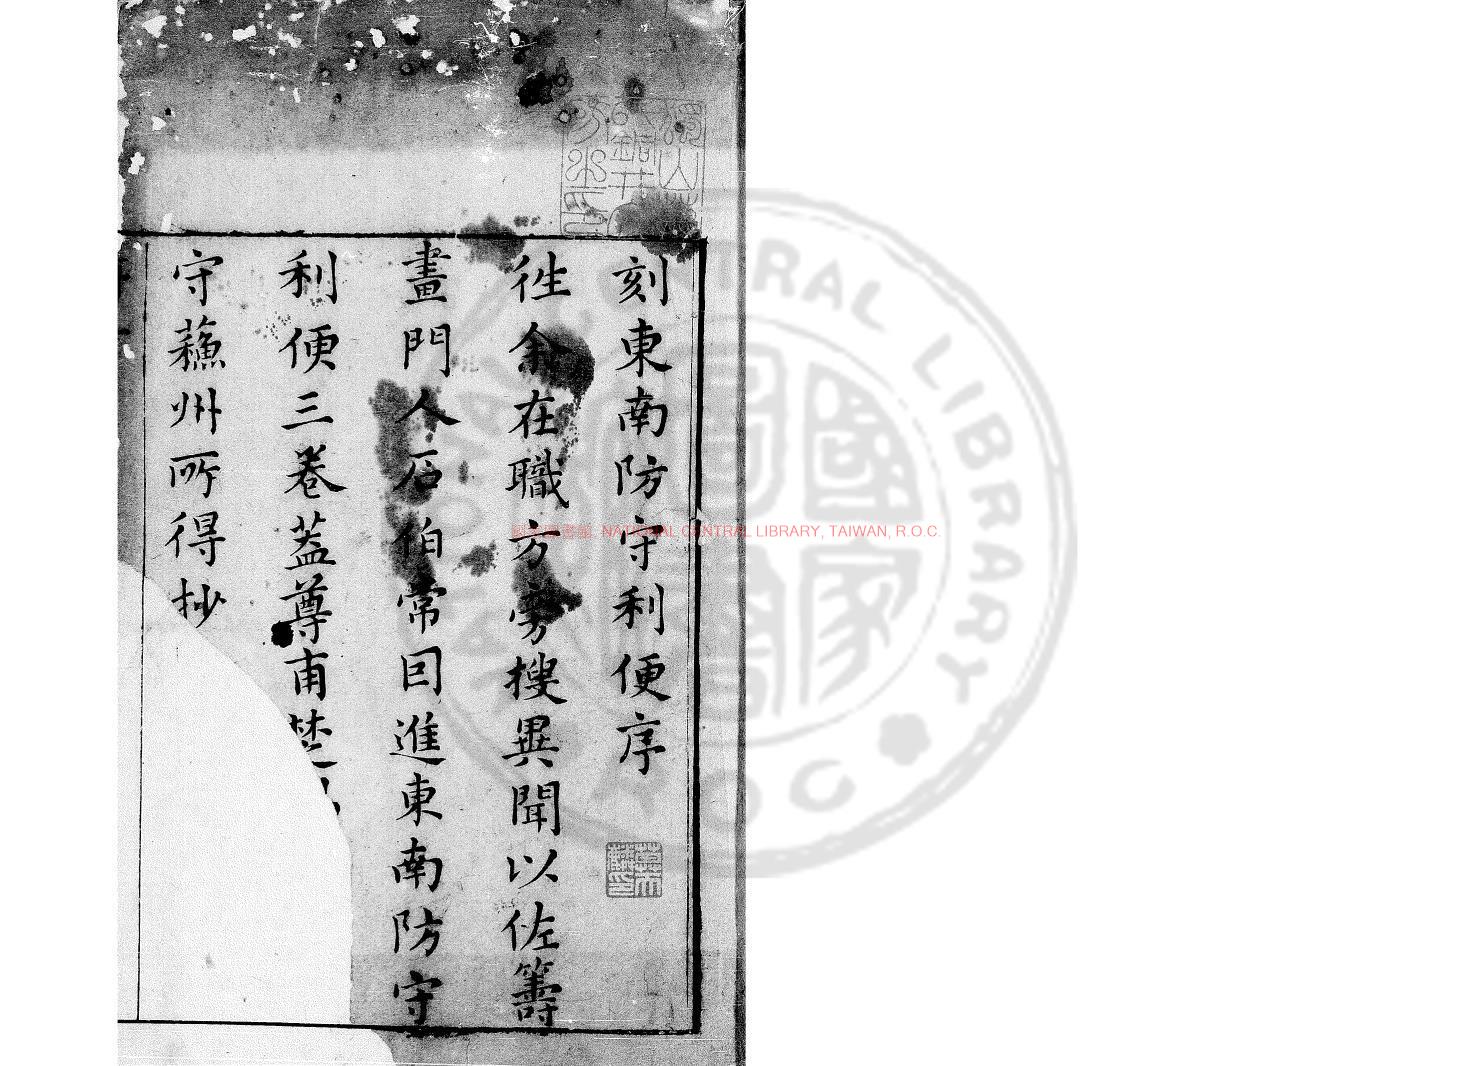 刻東南防守利便序
徃余在職方旁搜異聞以佐籌
畫門人石伯常囙進東南防守
利便三卷葢尊甫楚
守蘓州所得抄
國家圖書館 NATIONAL CENTRAL LIBRARY, TAIWAN, R.O.C.